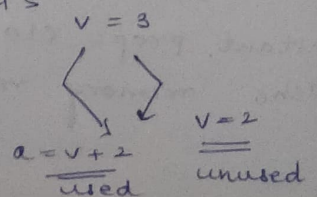 v = 3
a = v + 2
used
v = 2
unused